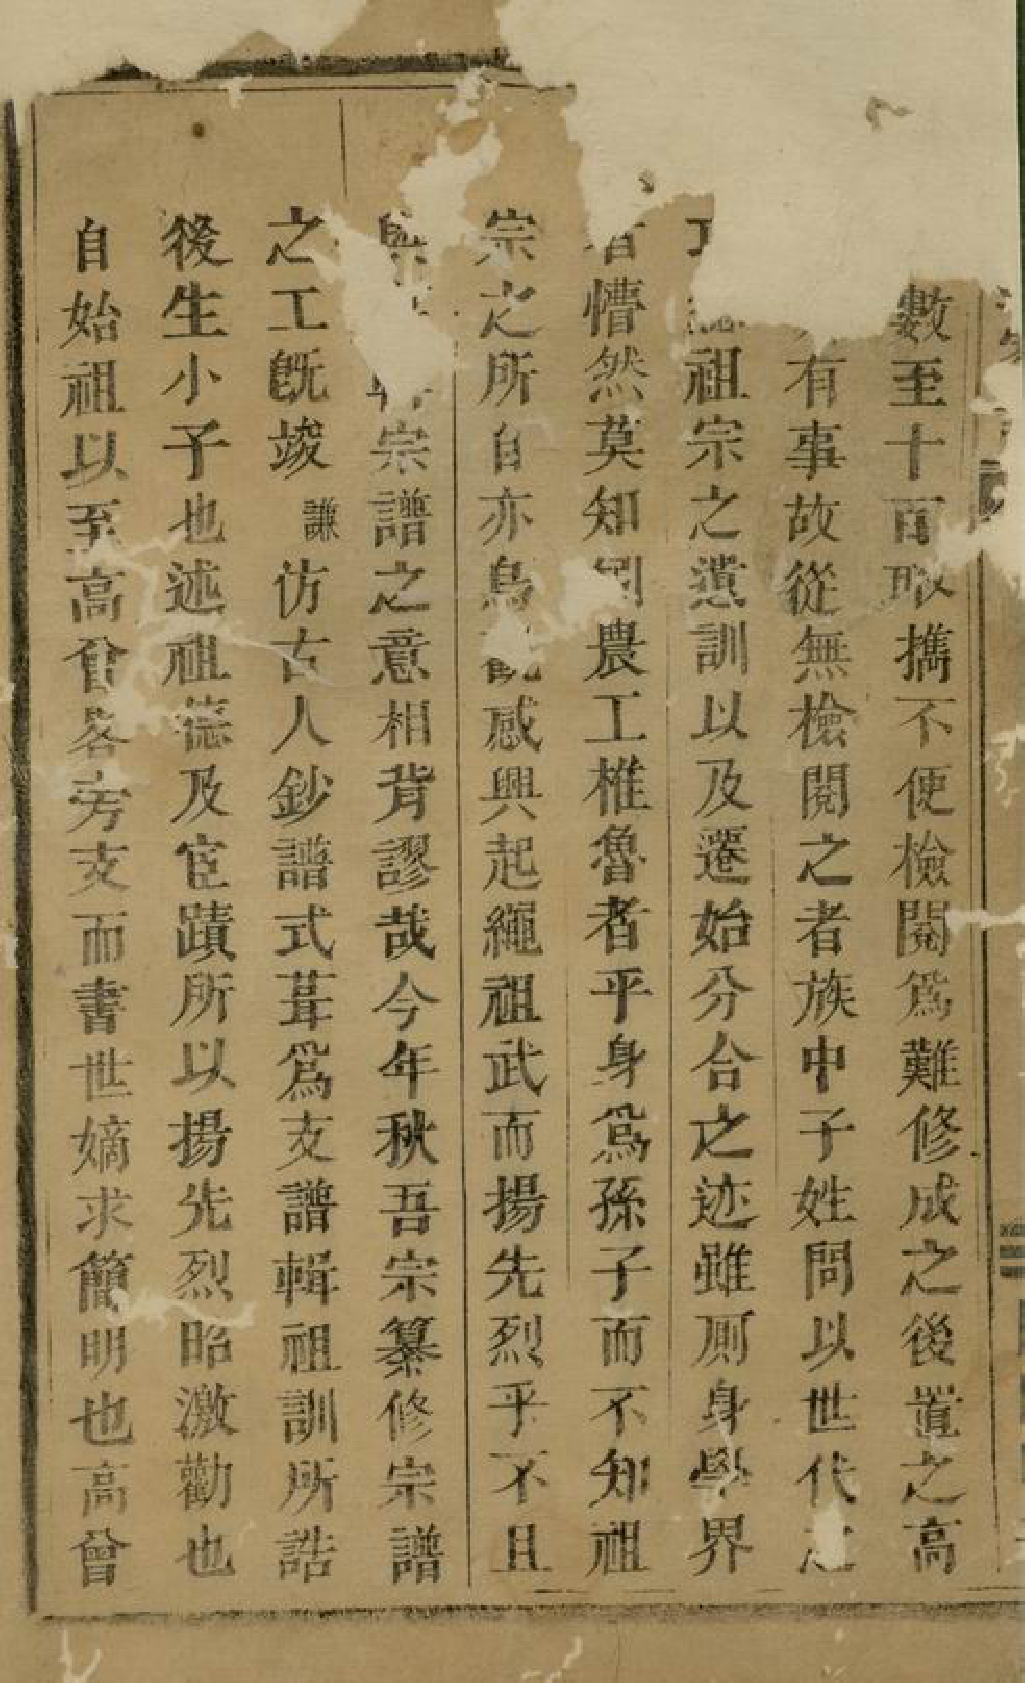 數至十百取攜不便檢閱爲難修成之後置之高
有事故從無檢閱之者族中子姓問以世代之
祖宗之遺訓以及遷始分合之迹雖厠身學界
者懵然莫知則農工椎魯者乎身爲孫子而不知祖
宗之所自亦烏觀感興起繩祖武而揚先烈乎不且
與宗譜之意相背謬哉今年秋吾宗纂修宗譜
之工旣竣謙仿古人鈔譜式葺爲支譜輯祖訓所誥
後生小子也述祖德及宦蹟所以揚先烈昭激勸也
自始祖以至高曾畧旁支而書世嫡求簡明也高曾